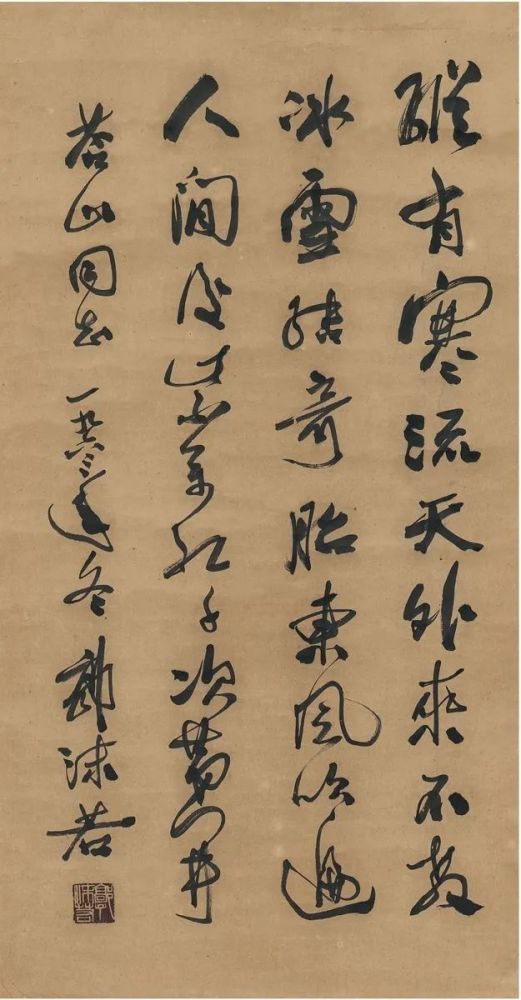 縱有寒流天外來不教
冰雪結奇胎東風吹遍
人間後紫萬紅千次第开
山同志 一九六三年冬 郭沫若
郭沫若